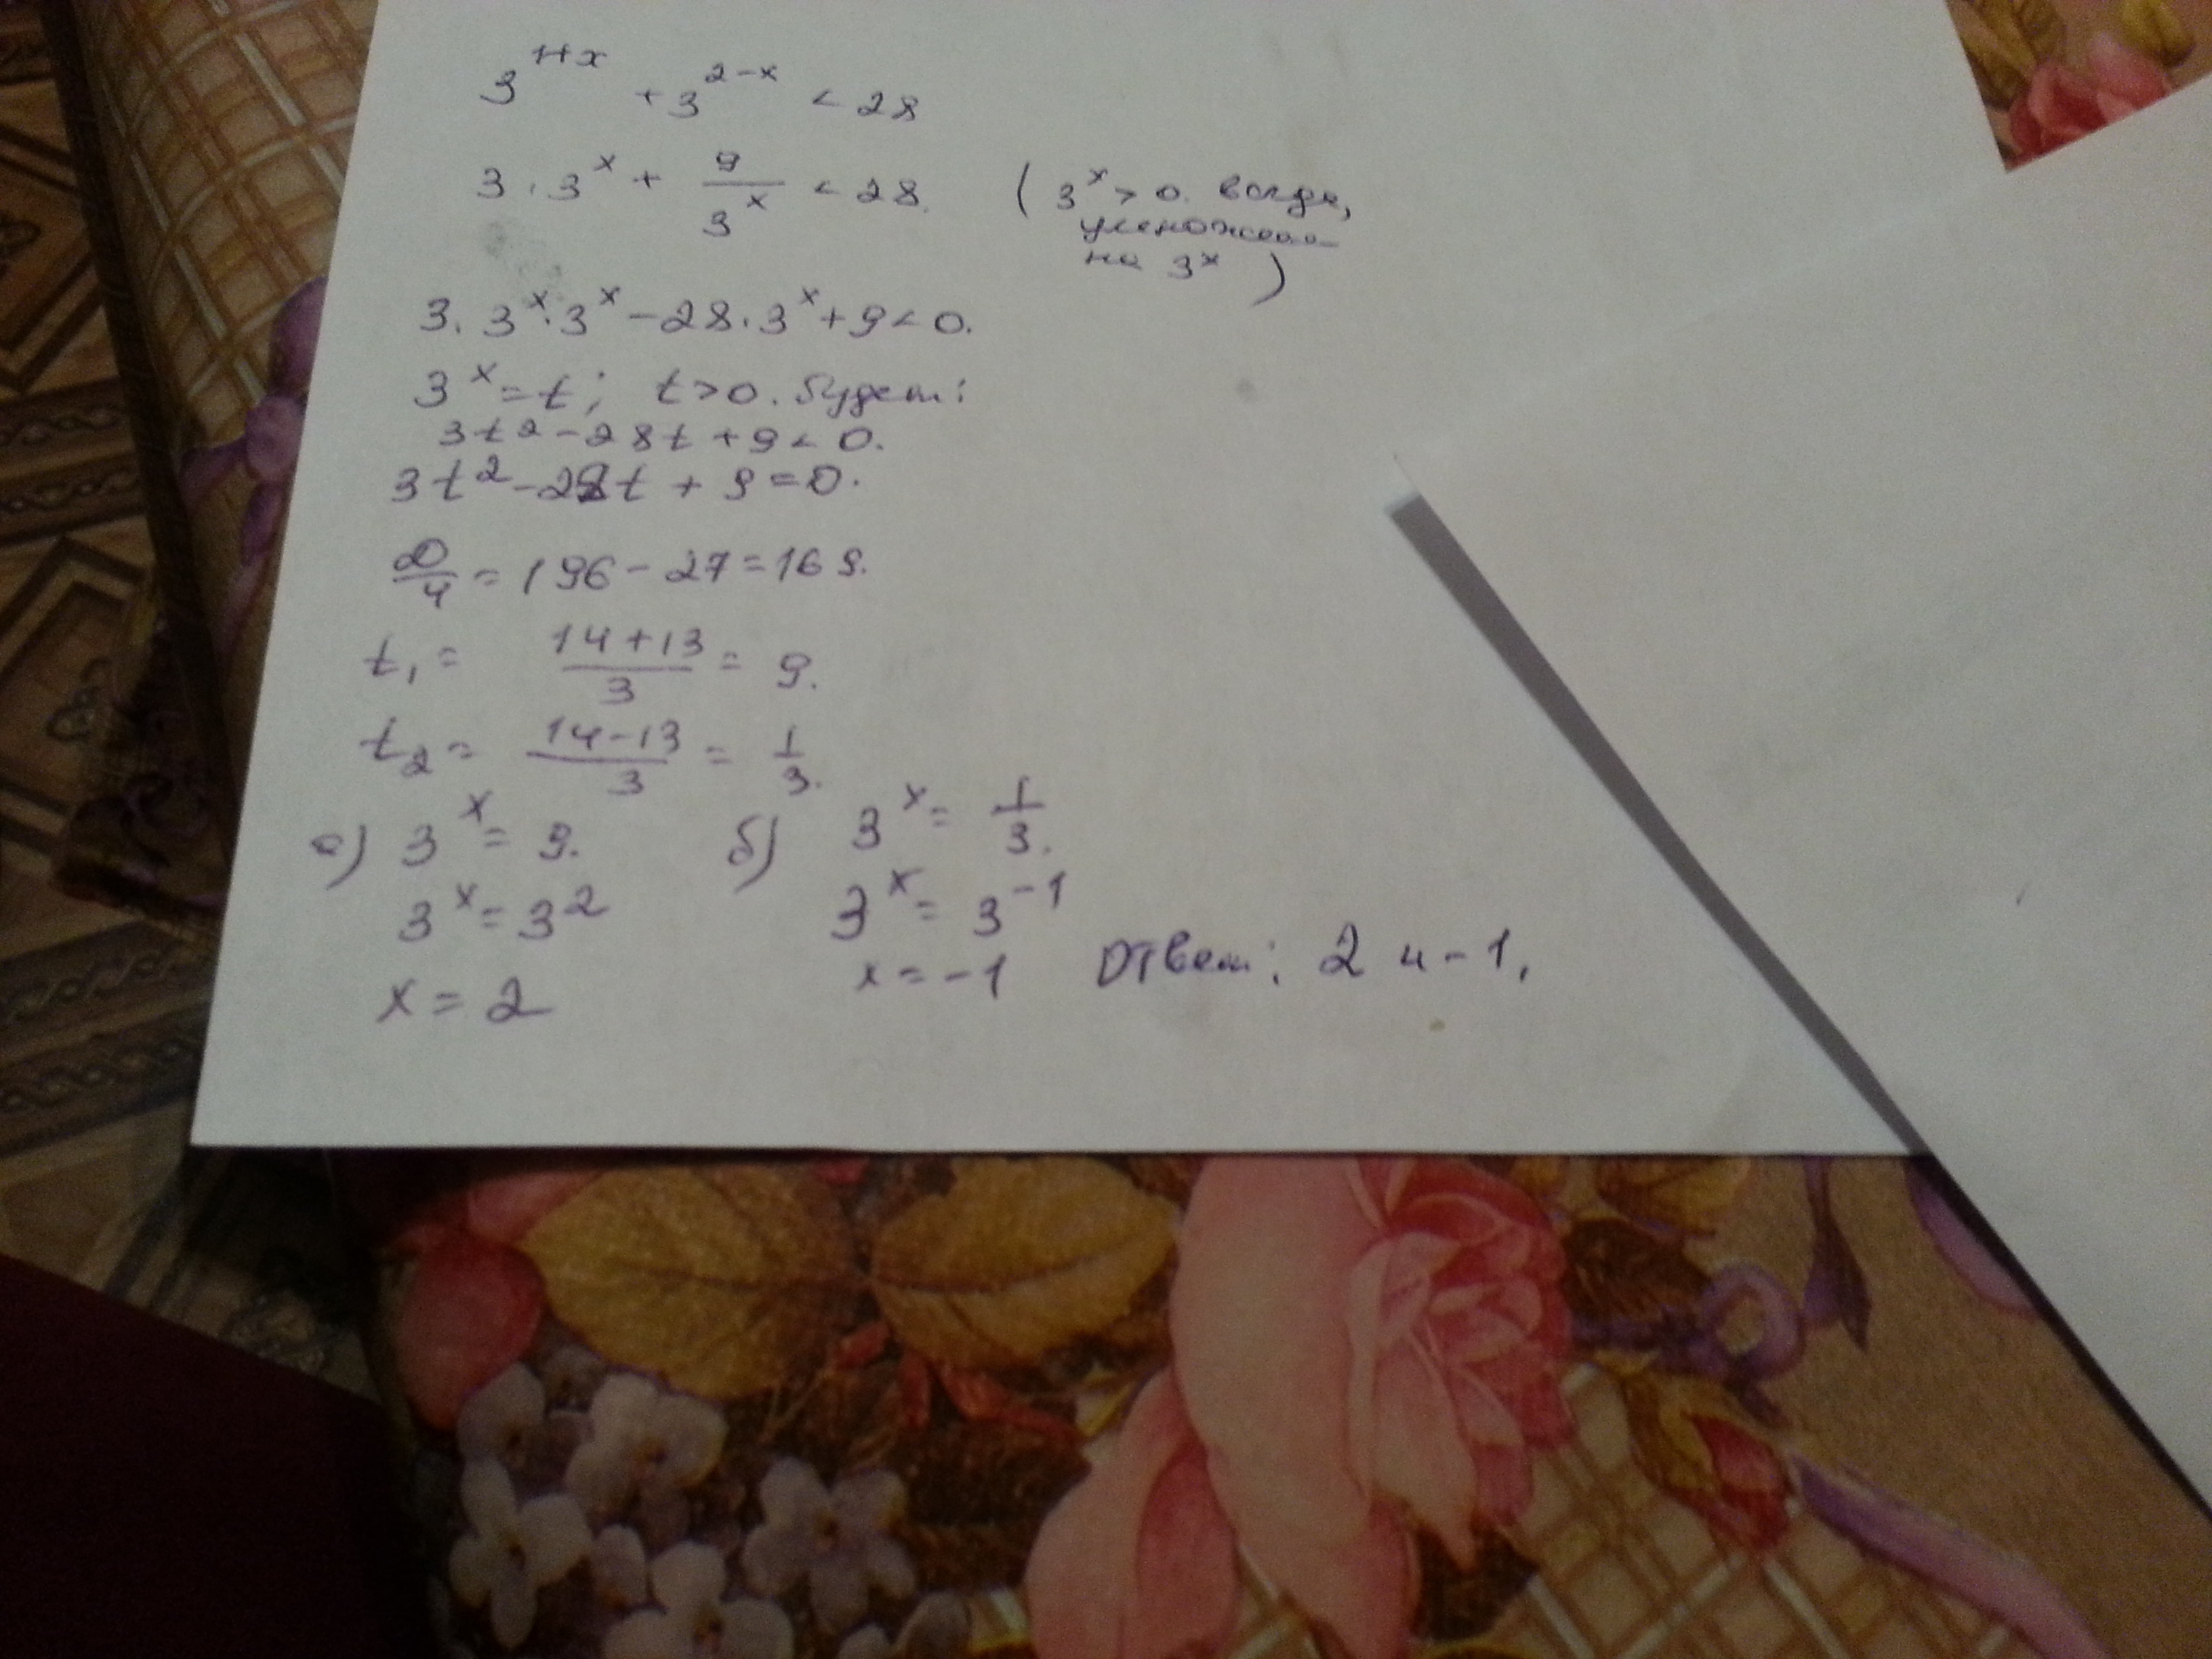 3^{1+x} + 3^{2-x} < 28
3 · 3^x + 9/3^x < 28. (3^x > 0. всегда,
умножаем
на 3^x)
3 · 3^x · 3^x - 28 · 3^x + 9 < 0.
3^x = t; t > 0. будет:
3t^2 - 28t + 9 < 0.
3t^2 - 28t + 9 = 0.
D/4 = 196 - 27 = 169.
t_1 = (14+13)/3 = 9.
t_2 = (14-13)/3 = 1/3.
а) 3^x = 9. б) 3^x = 1/3.
3^x = 3^2 3^x = 3^{-1}
x = 2 x = -1 Ответ: 2 и -1.